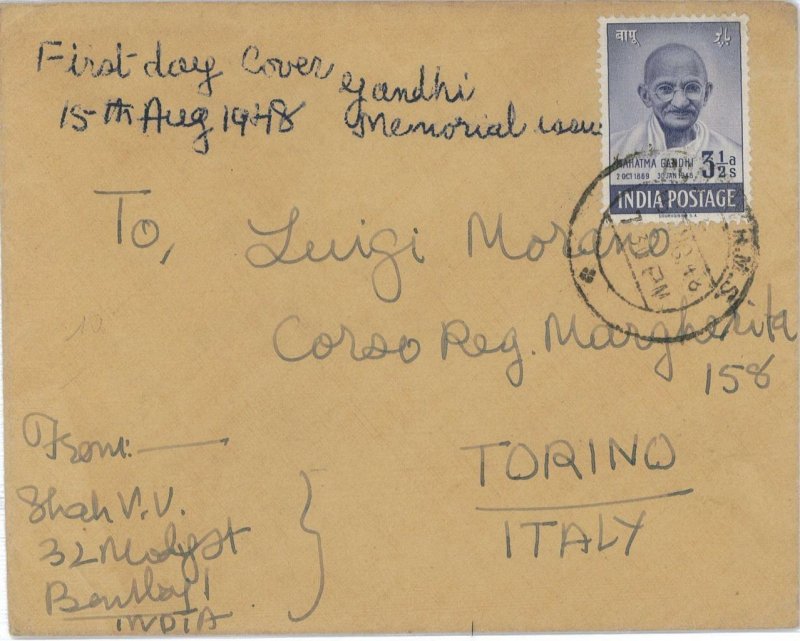 First day Cover Gandhi
15th Aug 1948 Memorial issue
बापू
MAHATMA GANDHI 3½ as
2 OCT 1869 30 JAN 1948
INDIA POSTAGE
R.M.S.
To, Luigi Morano
Corso Reg. Margherita
158
TORINO
ITALY
From:
Shah V.V.
32
Bombay 1
INDIA